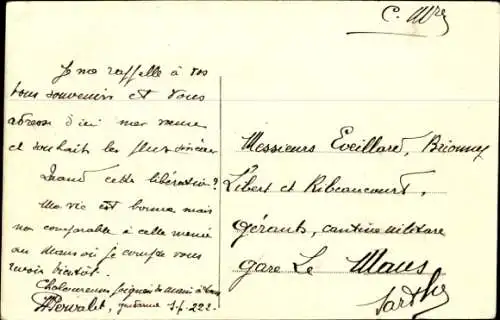 C. Mre
Je me rappelle à vos
bons souvenirs et vous
adresse d'ici mes vœux
et souhaits les plus sincères
Quand cette libération?
Ma vie est bonne mais
non comparable à celle menée
au Mans où je compte vous
revoir bientôt.
Chaleureuses poignées de mains à tous
S.P. 222.
Messieurs Eveillard, Brionnez
Libert et Ribeaucourt,
gérants, cantine militaire
gare Le Mans
Sarthe